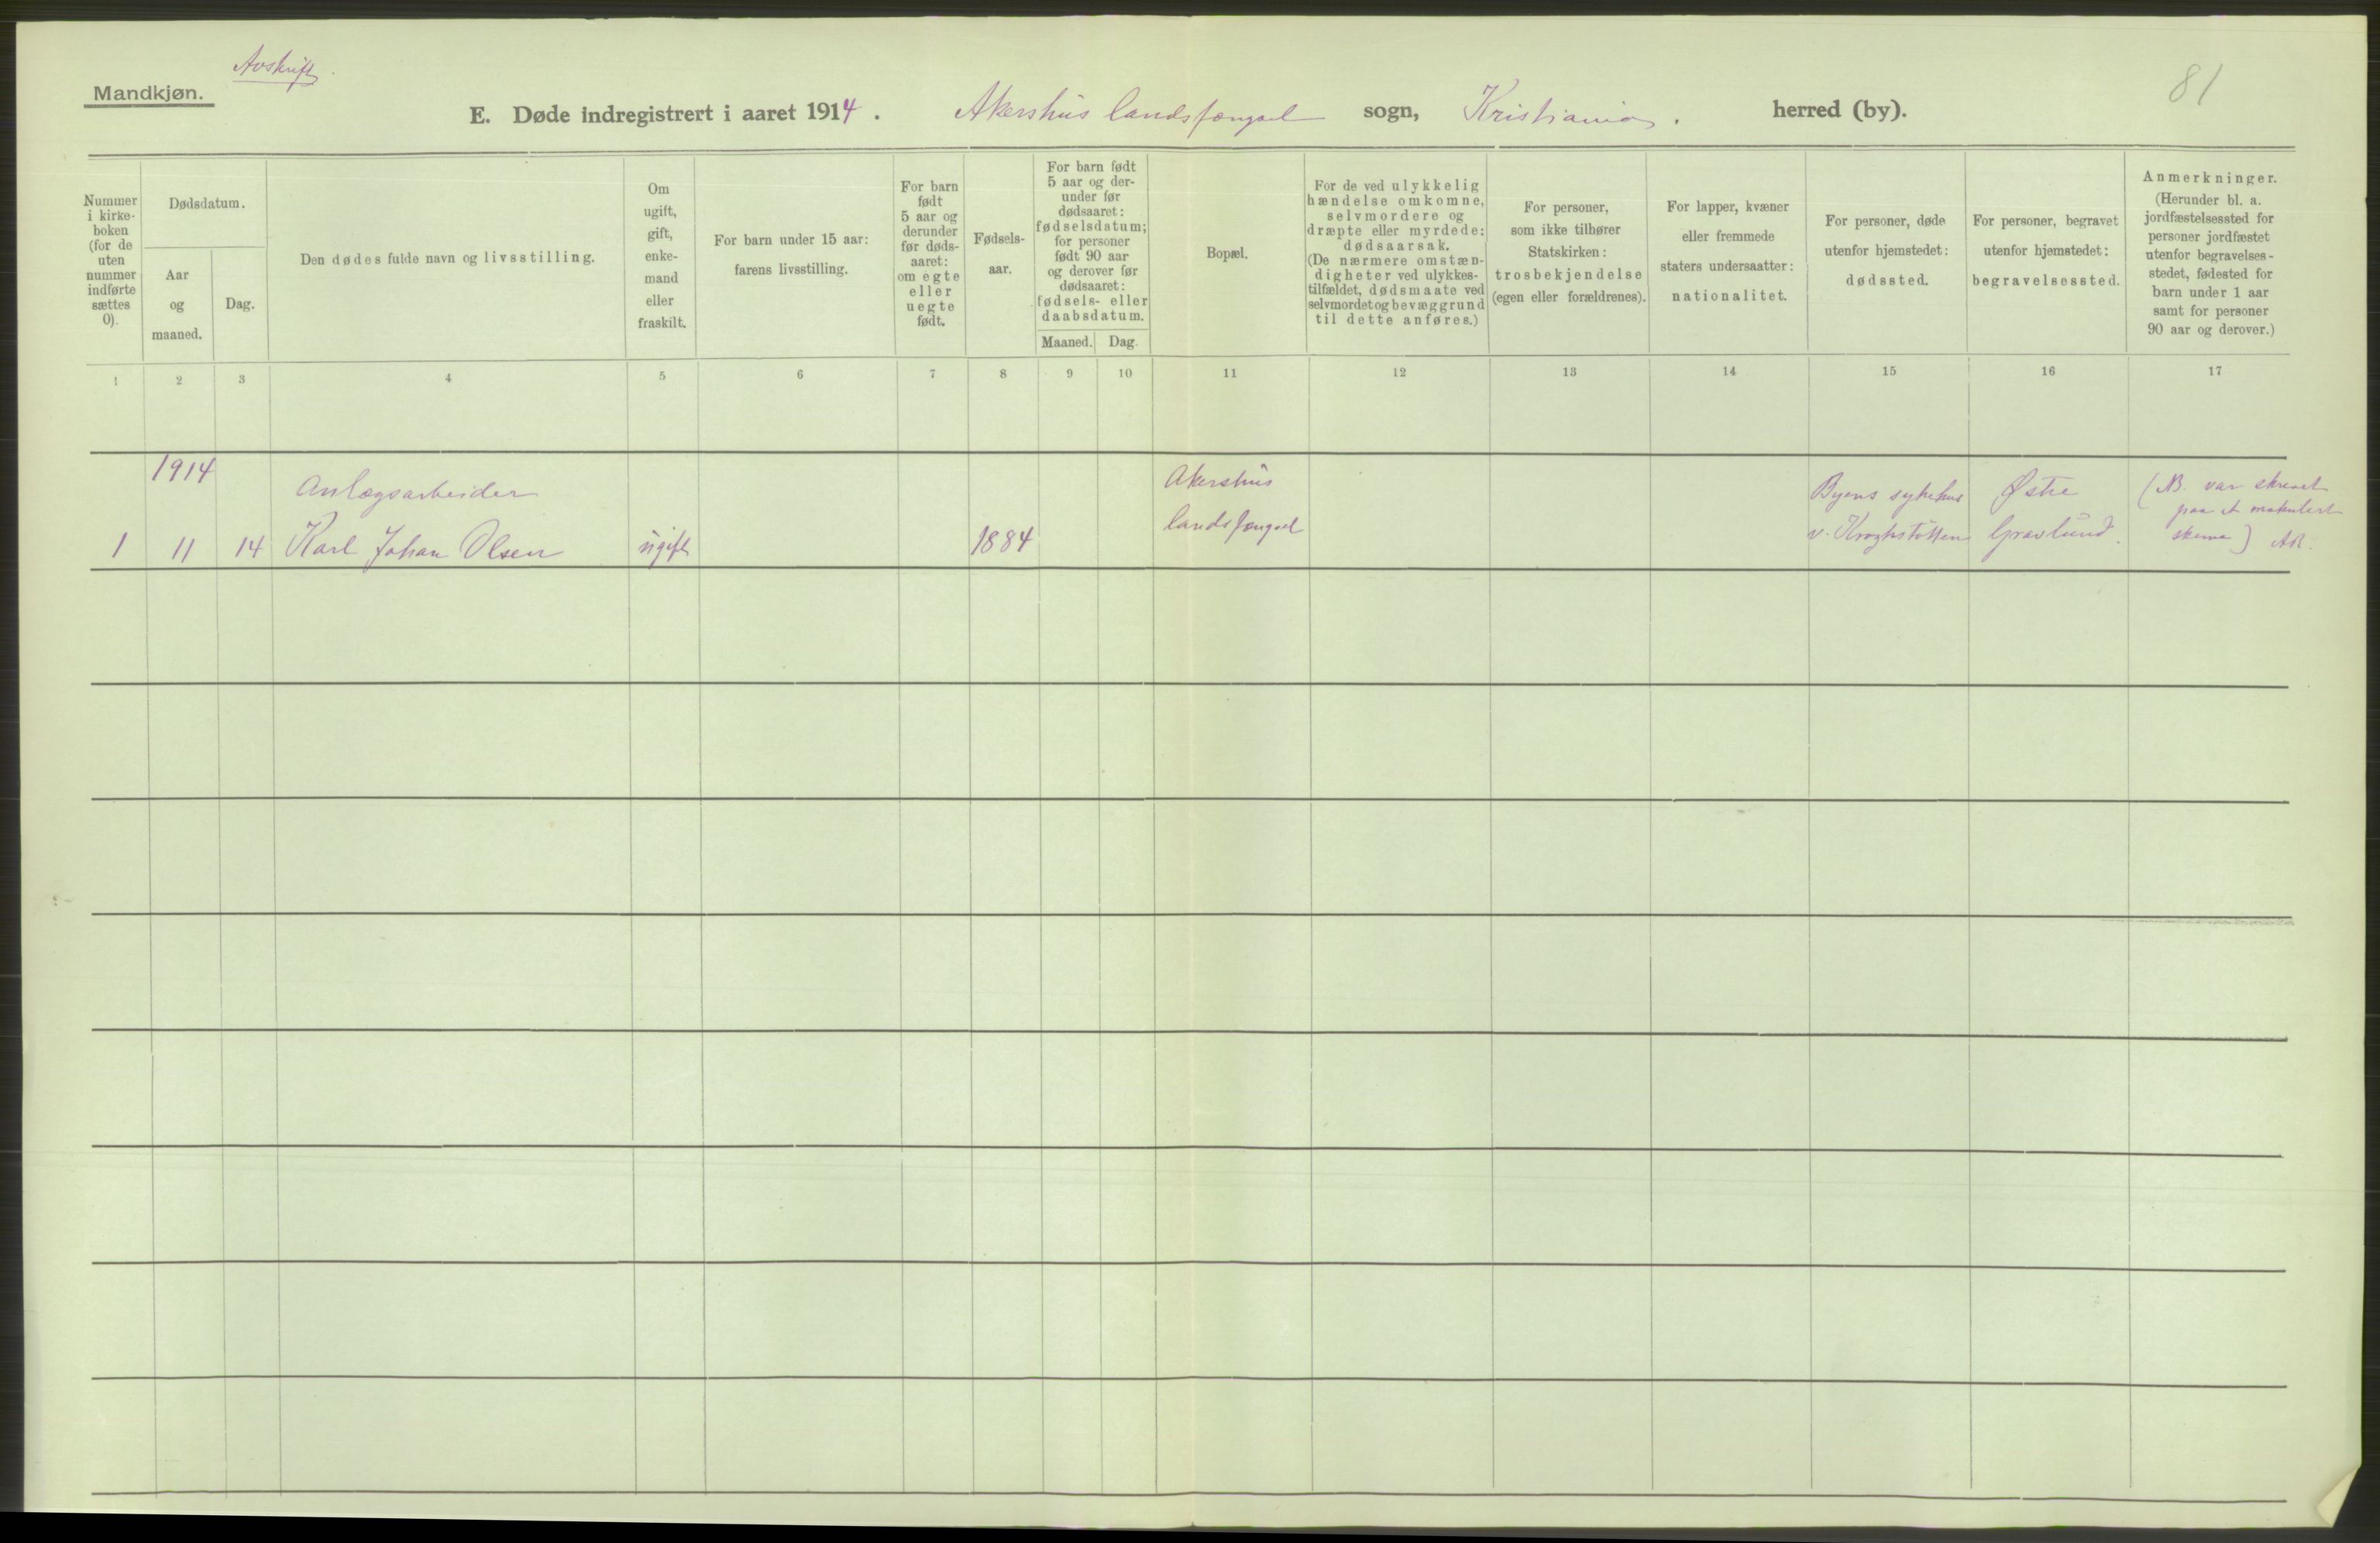 Avskrift.
Mandkjøn.
81
E. Døde indregistrert i aaret 1914. Akershus landsfængsel sogn, Kristiania. herred (by).
Nummer
i kirke-
boken
(for de
uten
nummer
indførte
sættes
0).
Dødsdatum.
Aar
og
maaned.
Dag.
Den dødes fulde navn og livsstilling.
Om
ugift,
gift,
enke-
mand
eller
fraskilt.
For barn under 15 aar:
farens livsstilling.
For barn
født
5 aar og
derunder
før døds-
aaret:
om egte
eller
uegte
født.
Fødsels-
aar.
For barn født
5 aar og der-
under før
dødsaaret:
fødselsdatum;
for personer
født 90 aar
og derover før
dødsaaret:
fødsels- eller
daabsdatum.
Maaned. Dag.
Bopæl.
For de ved ulykkelig
hændelse omkomne,
selvmordere og
dræpte eller myrdede:
dødsaarsak.
(De nærmere omstæn-
digheter ved ulykkes-
tilfældet, dødsmaate ved
selvmordet og bevæggrund
til dette anføres.)
For personer,
som ikke tilhører
Statskirken:
trosbekjendelse
(egen eller forældrenes).
For lapper, kvæner
eller fremmede
staters undersaatter:
nationalitet.
For personer, døde
utenfor hjemstedet:
dødssted.
For personer, begravet
utenfor hjemstedet:
begravelsessted.
Anmerkninger.
(Herunder bl. a.
jordfæstelsessted for
personer jordfæstet
utenfor begravelses-
stedet, fødested for
barn under 1 aar
samt for personer
90 aar og derover.)
1 2 3 4 5 6 7 8 9 10 11 12 13 14 15 16 17
1914
1 11 14
Anlægsarbeider
Karl Johan Olsen
ugift
1884
Akershus
landsfængsel
Byens sykehus
v. Krogstøtten
Østre
Gravlund.
(NB. var skrevet
paa et makulert
skema) AR.